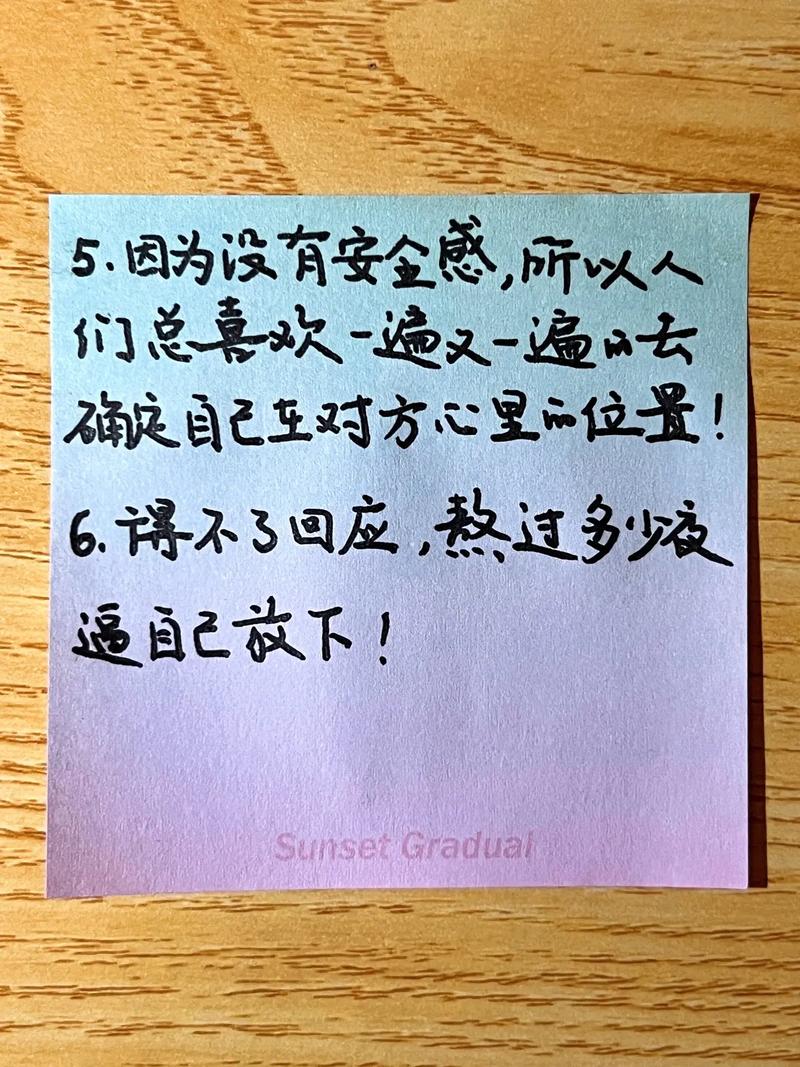 5.因为没有安全感,所以人
们总喜欢一遍又一遍的去
确定自己在对方心里的位置!
6.得不了回应,熬过多少夜
逼自己放下!
Sunset Gradual